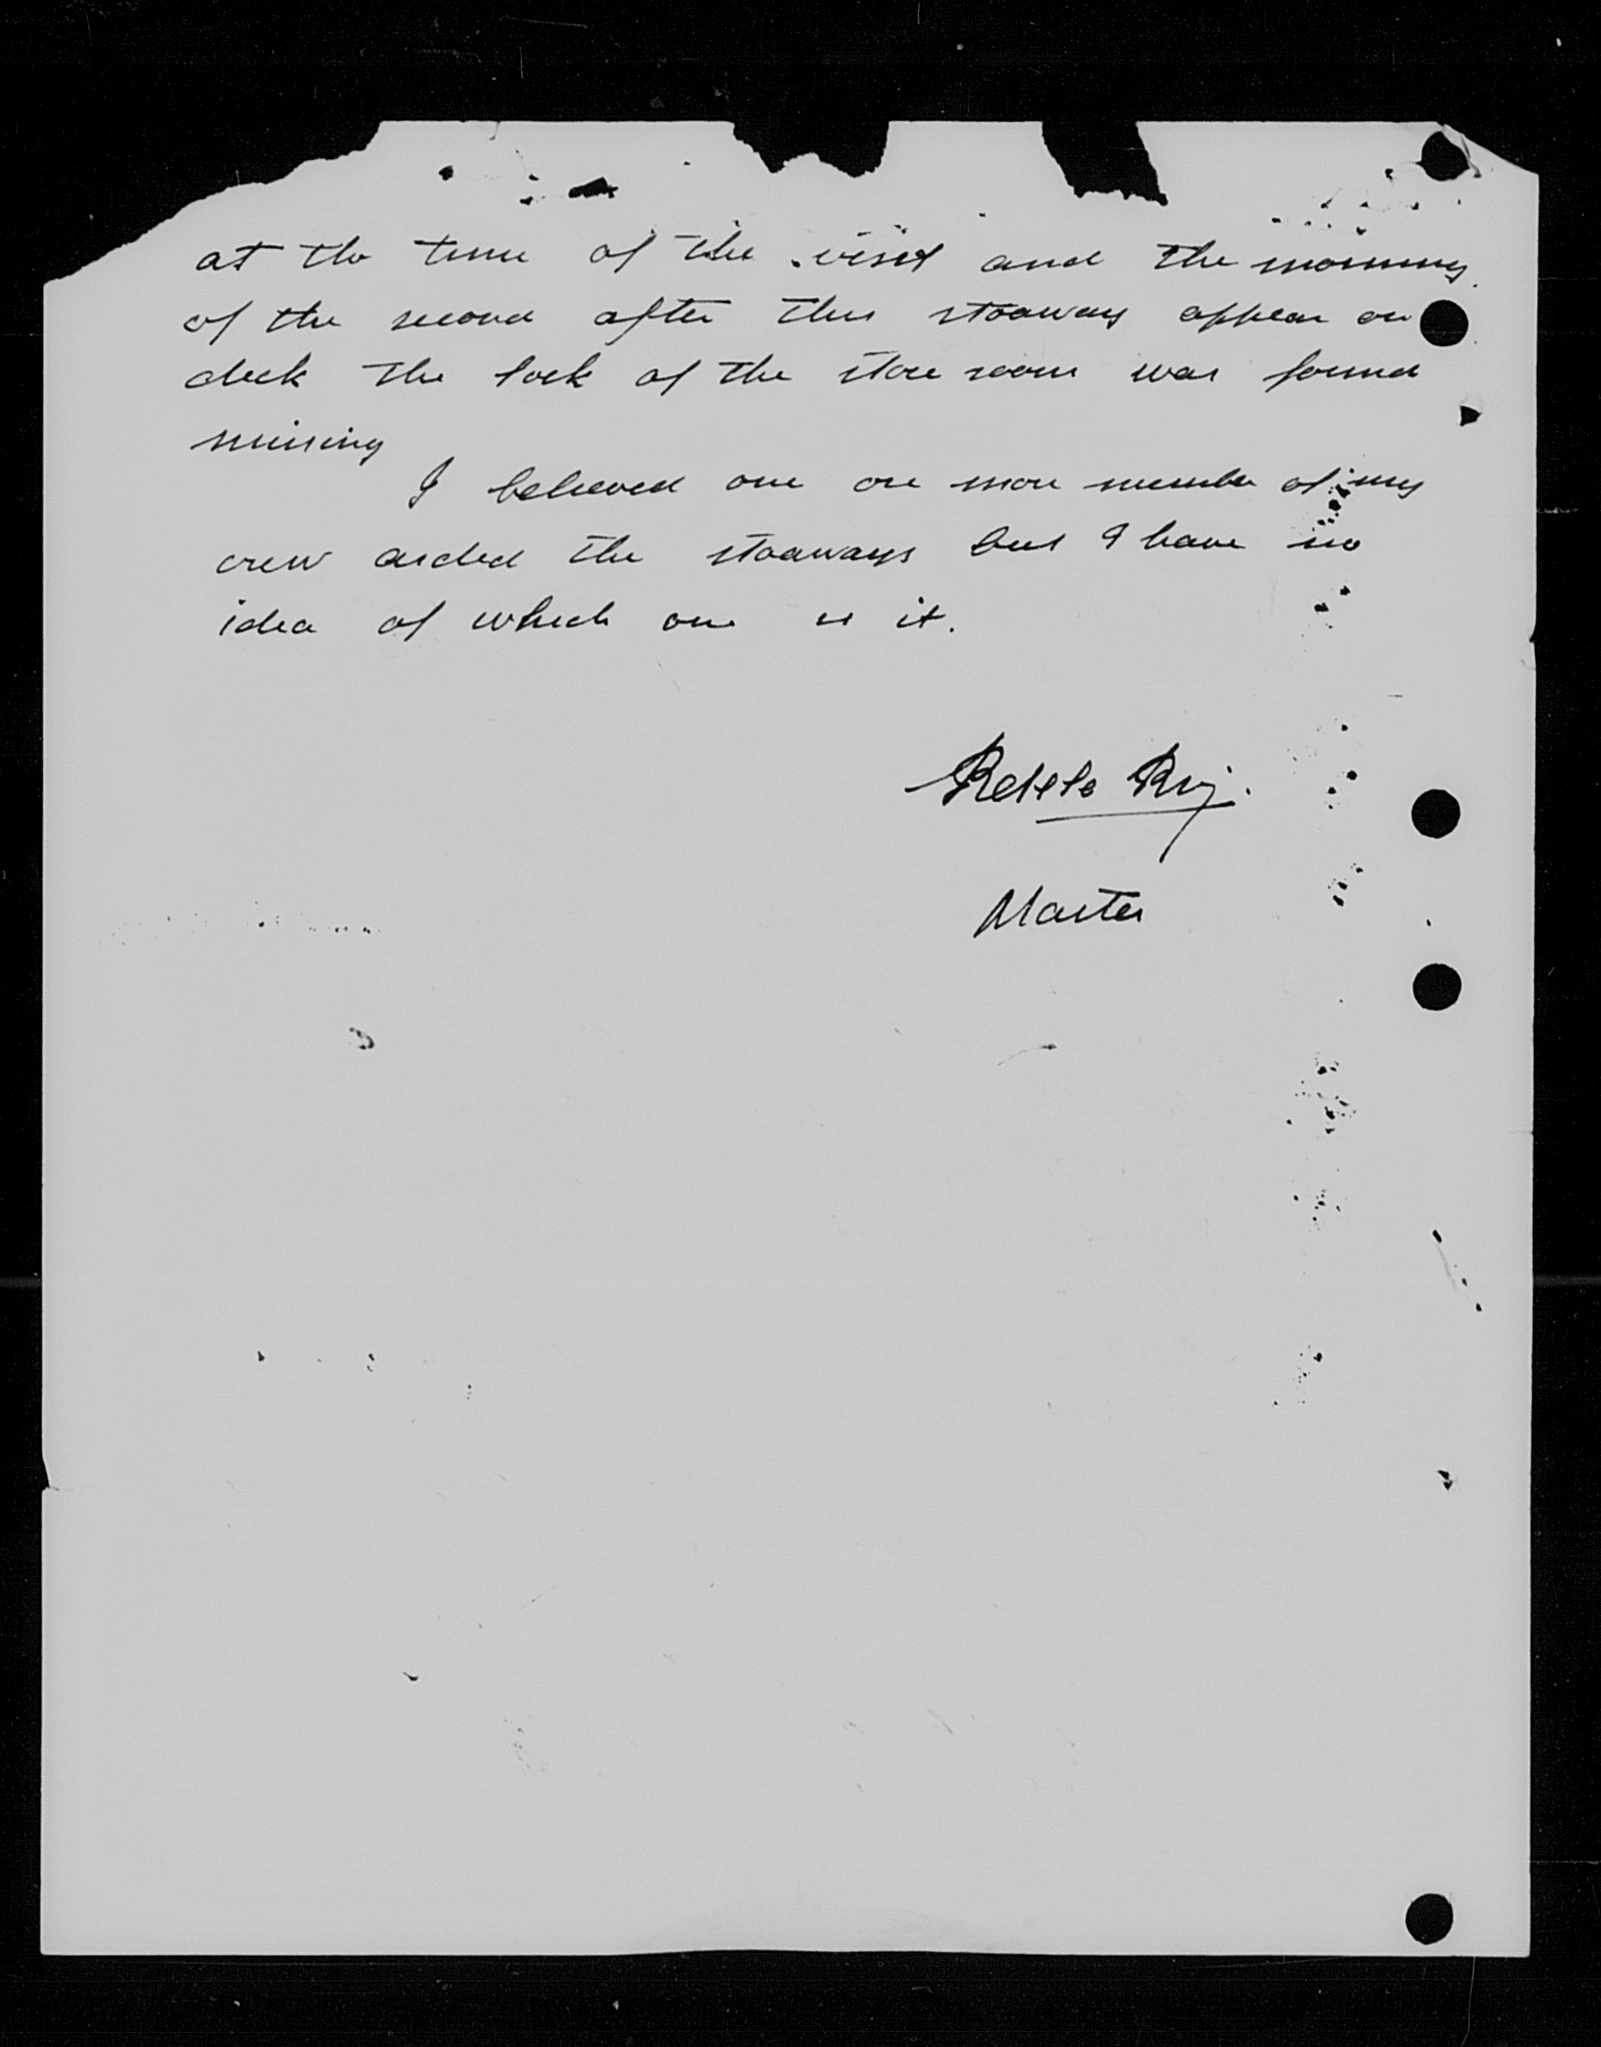 at the time of the visit and the morning
of the second after this stoaways appear on
deck the lock of the store room was found
missing
I believed one ore more member of my
crew aided the stoaways but I have no
idea of which one is it.
Master